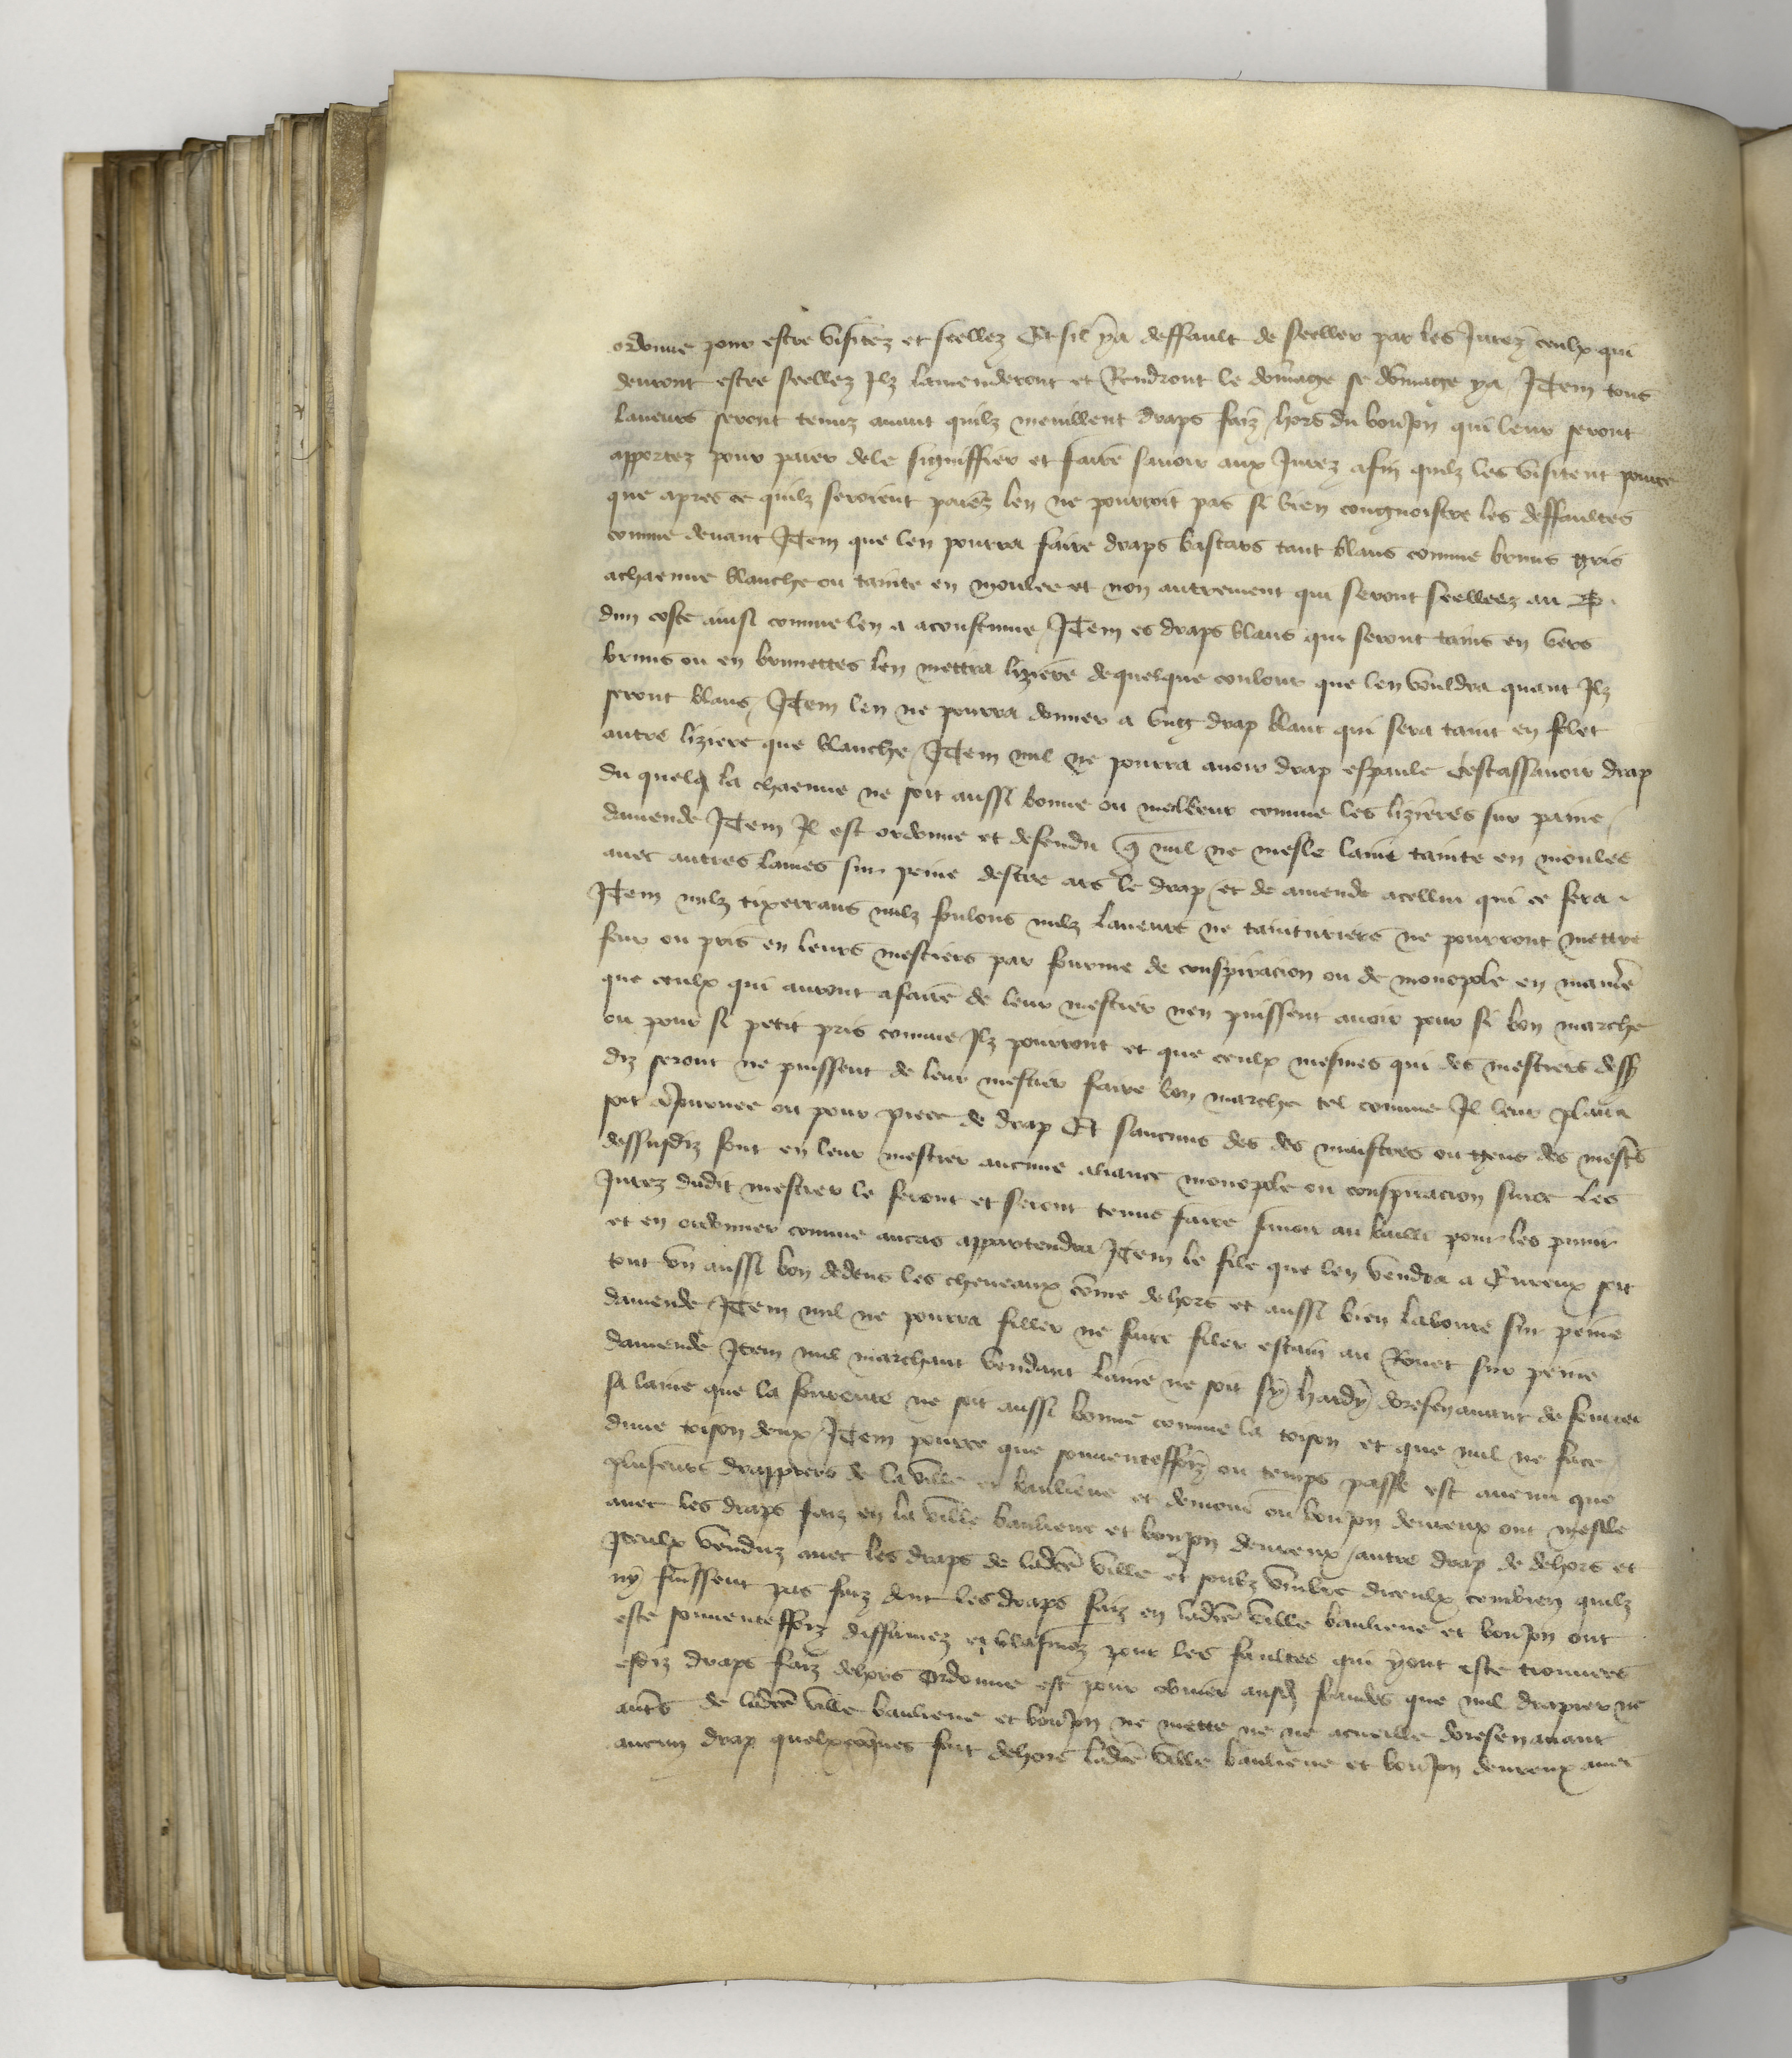 ordonne pour estre visitez et seellez Et sil ya deffault de seeller par les Jurez ceulx qui
deuront estre seellez Ilz lamenderont et Rendront le domage se domage ya Item tous
laneurs seront tenuz auant quilz meuillent draps faiz hors du bouJon qui leur seront
apportez pour parer de le signiffier et faire sauoir aux Jurez afin quilz les visitent pource
que apres ce quilz seroient parez len ne pourroit pas si bien congnoistre les deffaultes
comme deuant Item que len pourra faire draps bastars tant blans comme bruns gris
achaenne blanche ou tainte en moulee et non autrement qui seront seellez au
dun coste ainsi comme len a acoustume Item es draps blans qui seront tains en vers
bruns ou en brunettes len mettra liziere de quelque coulour que len vouldra quant Ilz
seront blans Item len ne pourra donner a vng drap blanc qui sera taint en
autre liziere que blanche Item nul ne pourra auoir drap espaule Cestassauoir drap
du quelq la chaenne ne soit aussi bonne ou meilleur comme les lizieres sur paine
damende Item Il est ordonne et defendu q nul ne mesle laine tainte en moulee
auec autres laines sur peine destre ars le drap et de amende acellui qui ce fera
Item nulz tixerrans nulz foulons nulz laneurs ne tainturiers ne pourront mettre
feur ou pris en leurs mestiers par fourme de conspiracion ou de monopole en maniere
que ceulx qui auront afaire de leur mestier nen puissent auoir pour si bon marche
ou pour si petit pris comme Ilz pourront et que ceulx mesmes qui des mestiers dess
diz seront ne puissent de leur mestier faire bon marche tel comme Il leur plaira
soit a Journee ou pour piece de drap Et saucuns des des maistres ou gens des mest
dessusdiz font en leur mestier aucune aliance monopole ou conspiracion sur ce les
Jurez dudit mestier le feront et seront tenus faire sauoir au bailli pour les punir
et en ordonner comme au cas appartendra Item le file que len vendra a Eureux soit
tout vn aussi bon dedens les cheueaux come dehors et aussi bien laboure sur peine
damende Item nul ne pourra filler ne faire filer estain au Rouet sur peine
damende Item nul marchant vendant laine ne soit sy hardy doresenauant de fourrer
sa laine que la fourreure ne soit aussi bonne comme la toison et que nul ne face
dune toison deux Item pource que souuenteffoiz ou temps passe est auenu que
pluseurs drappiers de la ville et banlieue et demour ou bouJon deureux ont mesle
auec les draps faiz en la ville banlieue et bouJon deureux autre drap de dehors et
Iceulx venduz auec les draps de ladicte ville et soubz vmbre diceulx combien quilz
ny fuissent pas faiz dont les draps faiz en ladicte ville banlieue et bouJon ont
este souuenteffoiz diffamez et blasmez pour les faultes qui yont este trouuees
esdiz draps faiz dehors Ordonne est pour obuier ausd fraudes que nul drapier ne
autres de ladicte ville banlieue et bouJon ne mette ne ne acueille doresenauant
aucun drap quelxcoques fait dehors ladicte ville banlieue et bouJon deureux auec